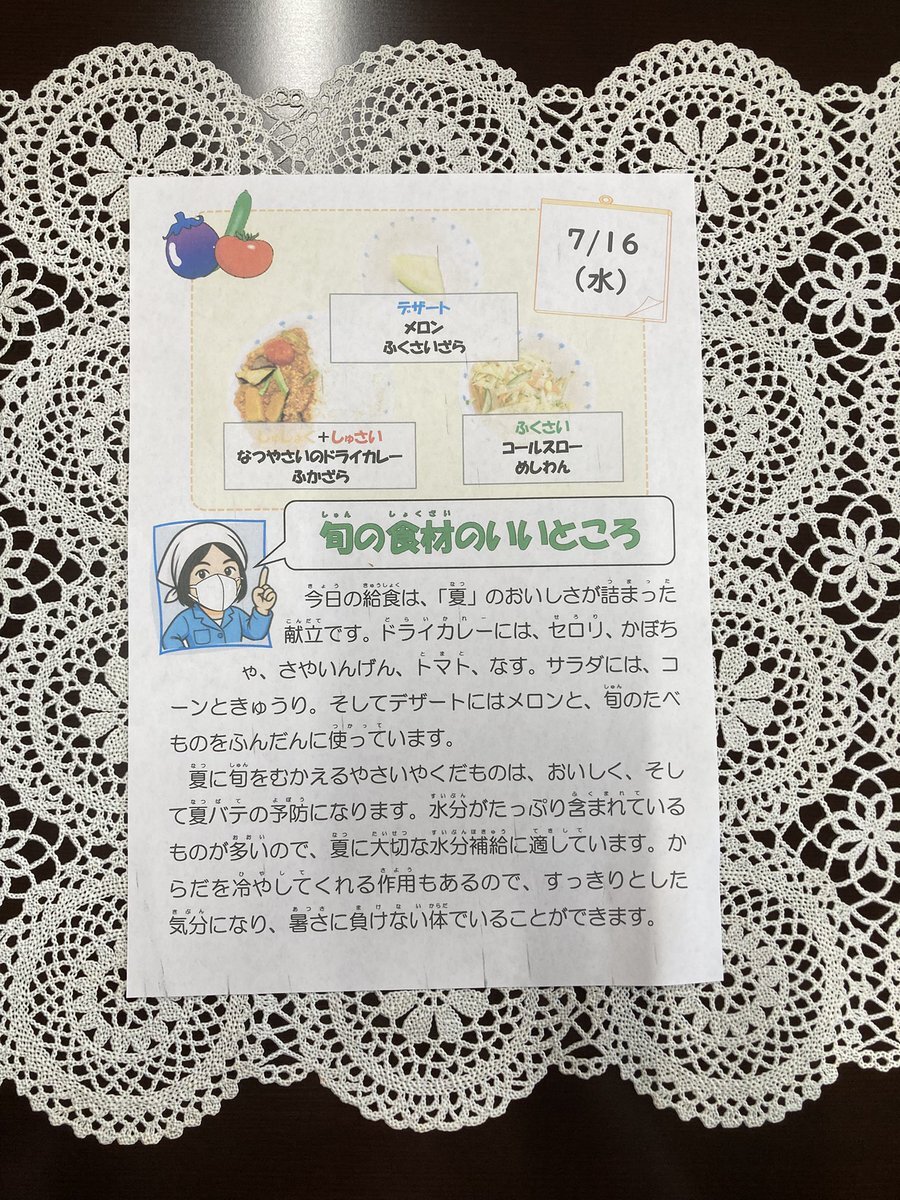 7/16
(水)
デザート
メロン
ふくさいざら
しゅしょく+しゅさい
なつやさいのドライカレー
ふかざら
ふくさい
コールスロー
めしわん
旬の食材のいいところ
今日の給食は、「夏」のおいしさが詰まった
献立です。ドライカレーには、セロリ、かぼち
ゃ、さやいんげん、トマト、なす。サラダには、コ
ーンときゅうり。そしてデザートにはメロンと、旬のたべ
ものをふんだんに使っています。
夏に旬をむかえるやさいやくだものは、おいしく、そし
て夏バテの予防になります。水分がたっぷり含まれている
ものが多いので、夏に大切な水分補給に適しています。か
らだを冷やしてくれる作用もあるので、すっきりとした
気分になり、暑さに負けない体でいることができます。